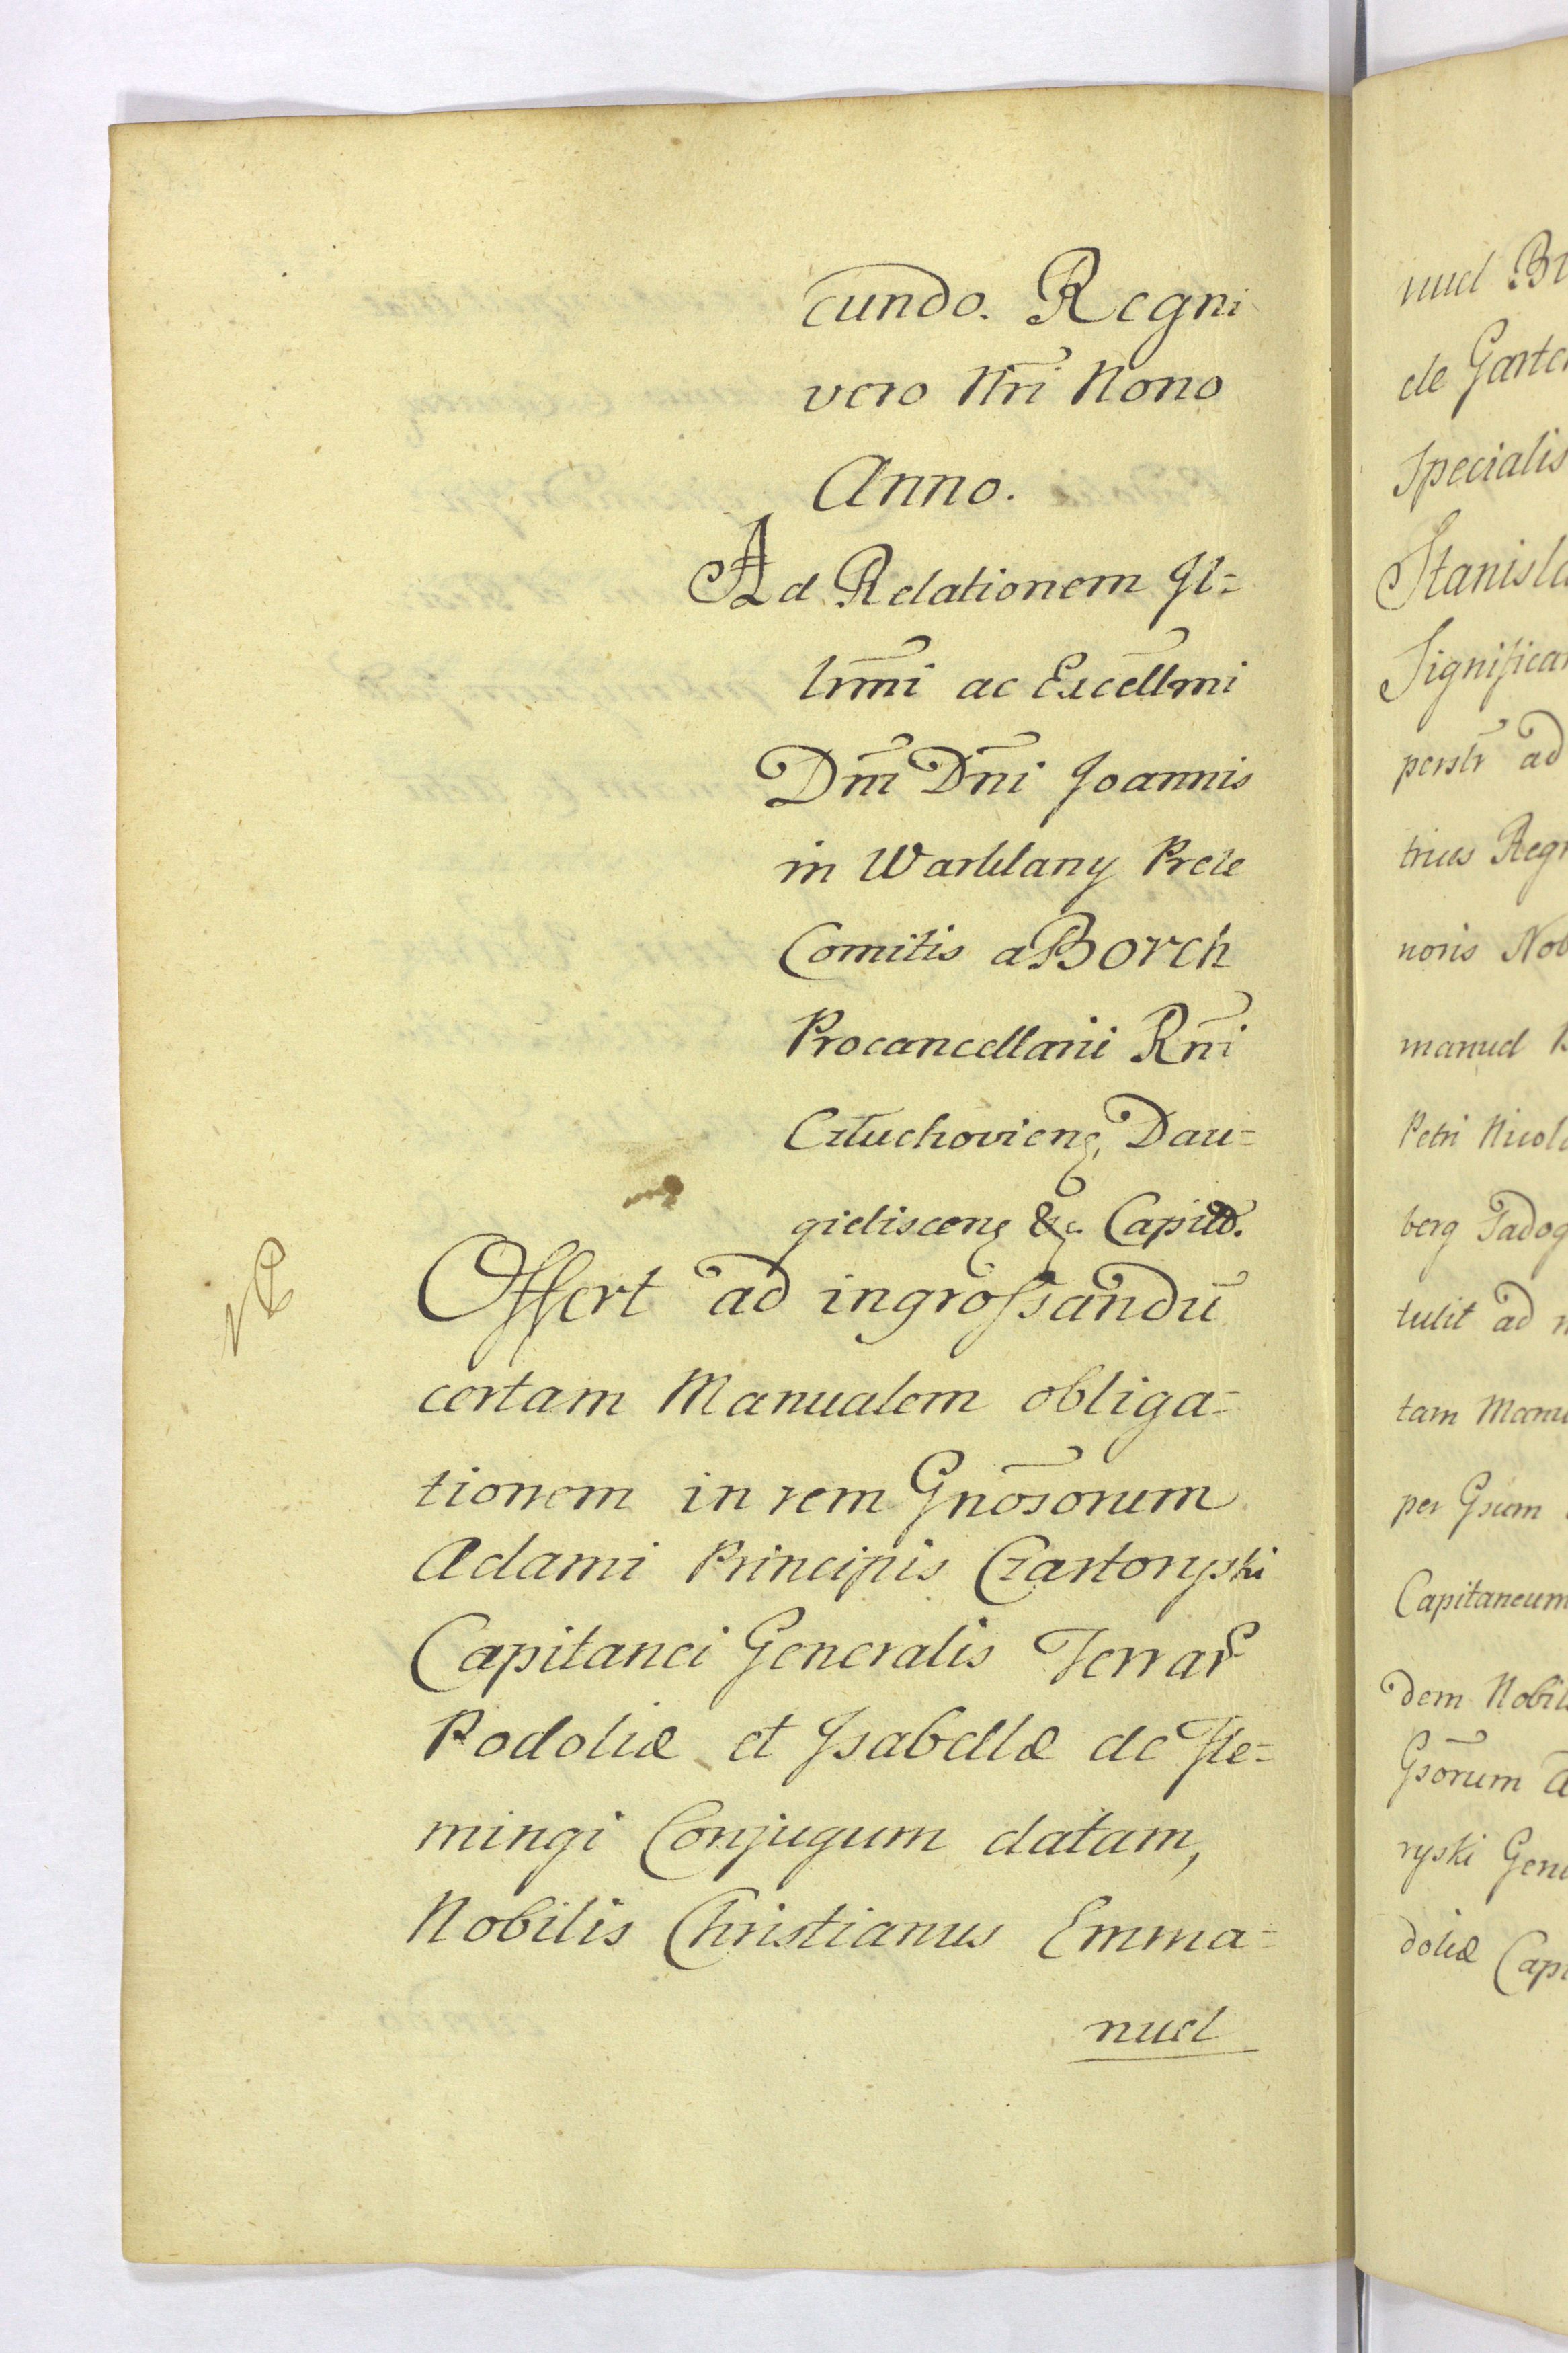 cundo. Regni
vero Nri Nono
Anno.
Ad Relationem Jl=
lrmi ac Excellmi
Dni Dni Joannis
in Warklany Prele
Comitis a Borch
Procancellarii Rni
Człuchovieng Dau=
gielisceng &c. Capit.
Offert ad ingrossandū
certam Manualem obliga=
tionem in rem Gnosorum
Adami Principis Czartoryski
Capitanei Generalis Terrar
Podoliæ et Jsabellæ de Fle=
mingi Conjugum datam,
Nobilis Christianus Emma=
nuel
nuel
de
Specialis
perstr ad
noris
manuel
Petri
berg
tulit ad
tam
per Gsum
Capitaneum
dem
Gsorum
ryski
doliæ